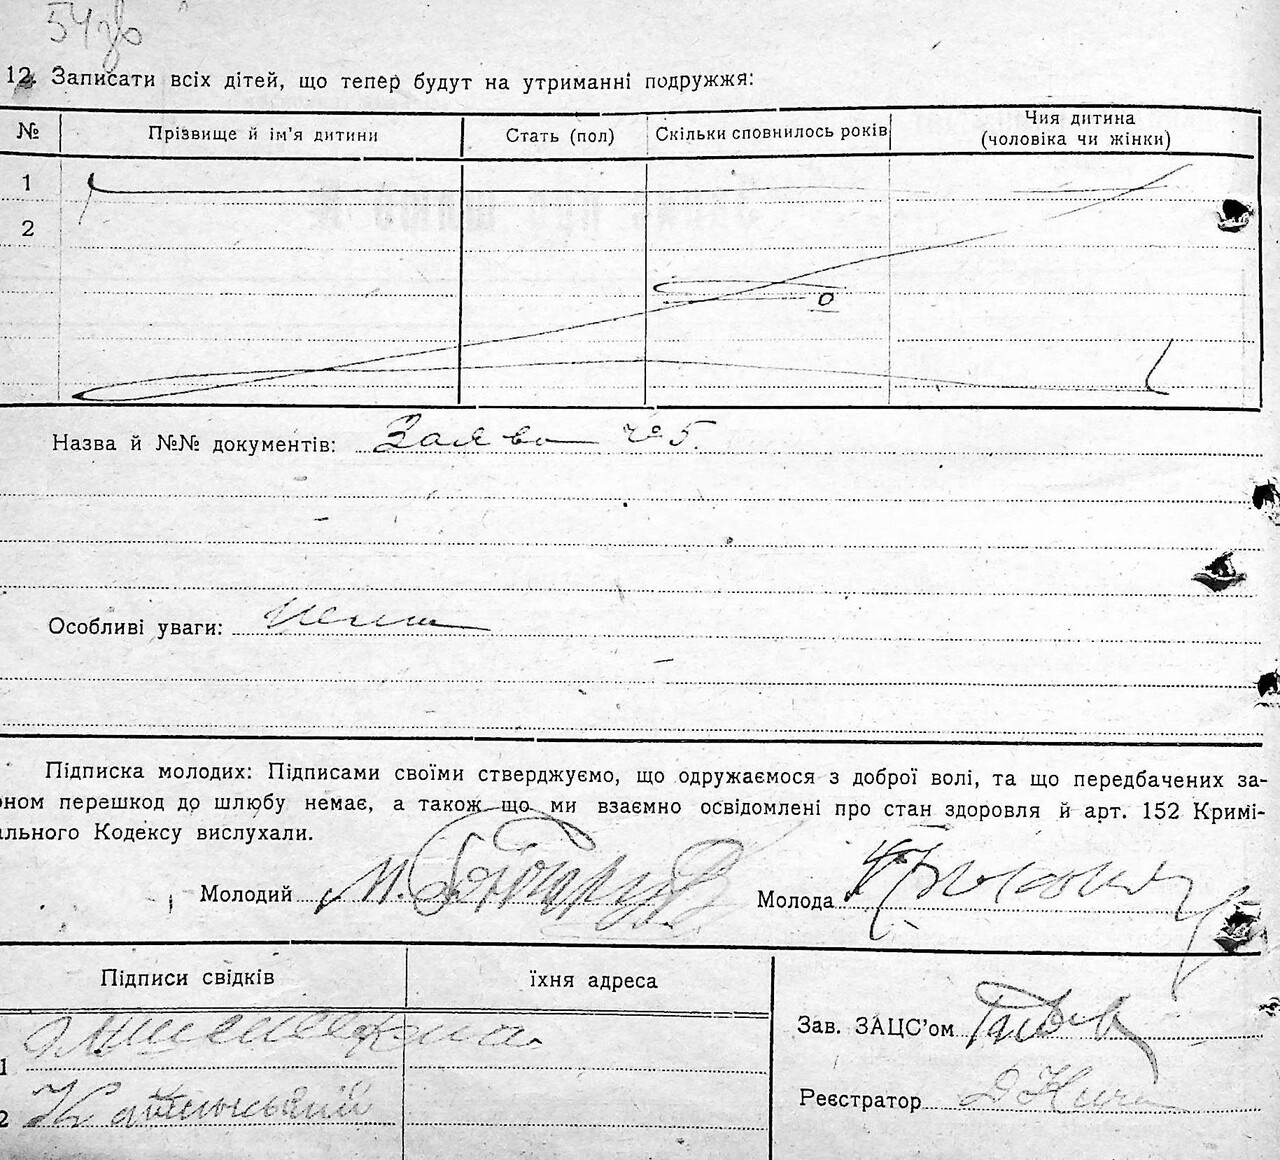 54зв
12. Записати всіх дітей, що тепер будут на утриманні подружжя:
№ Прізвище й ім'я дитини Стать (пол) Скільки сповнилось років Чия дитина (чоловіка чи жінки)
1
2
Назва й №№ документів: Заява № 5.
Особливі уваги:
Підписка молодих: Підписами своїми стверджуємо, що одружаємося з доброї волі, та що передбачених за-
оном перешкод до шлюбу немає, а також що ми взаємно освідомлені про стан здоровля й арт. 152 Кримі-
ального Кодексу вислухали.
Молодий М. Молода
Підписи свідків їхня адреса
Зав. ЗАЦС'ом
1
Реєстратор
2